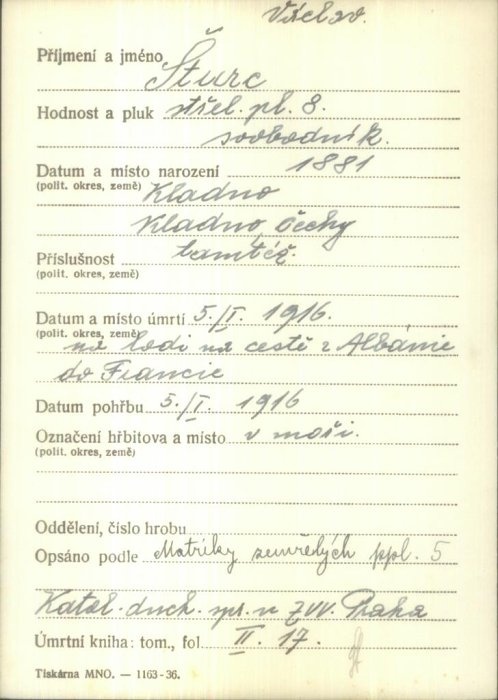 Václav.
Příjmení a jméno Šturc
Hodnost a pluk střel. pl. 8.
svobodník.
Datum a místo narození 1881
(polit. okres, země) Kladno
Kladno, Čechy
Příslušnost tamtéž.
(polit. okres, země)
Datum a místo úmrtí 5./I. 1916.
(polit. okres, země) na lodi na cestě z Albánie
do Francie
Datum pohřbu 5./I. 1916
Označení hřbitova a místo v moři.
(polit. okres, země)
Oddělení, číslo hrobu
Opsáno podle Matriky zemřelých ppl. 5
Katol. duch. spr. u ZVV. Praha
Úmrtní kniha: tom., fol. II. 17.
Tiskárna MNO. — 1163-36.